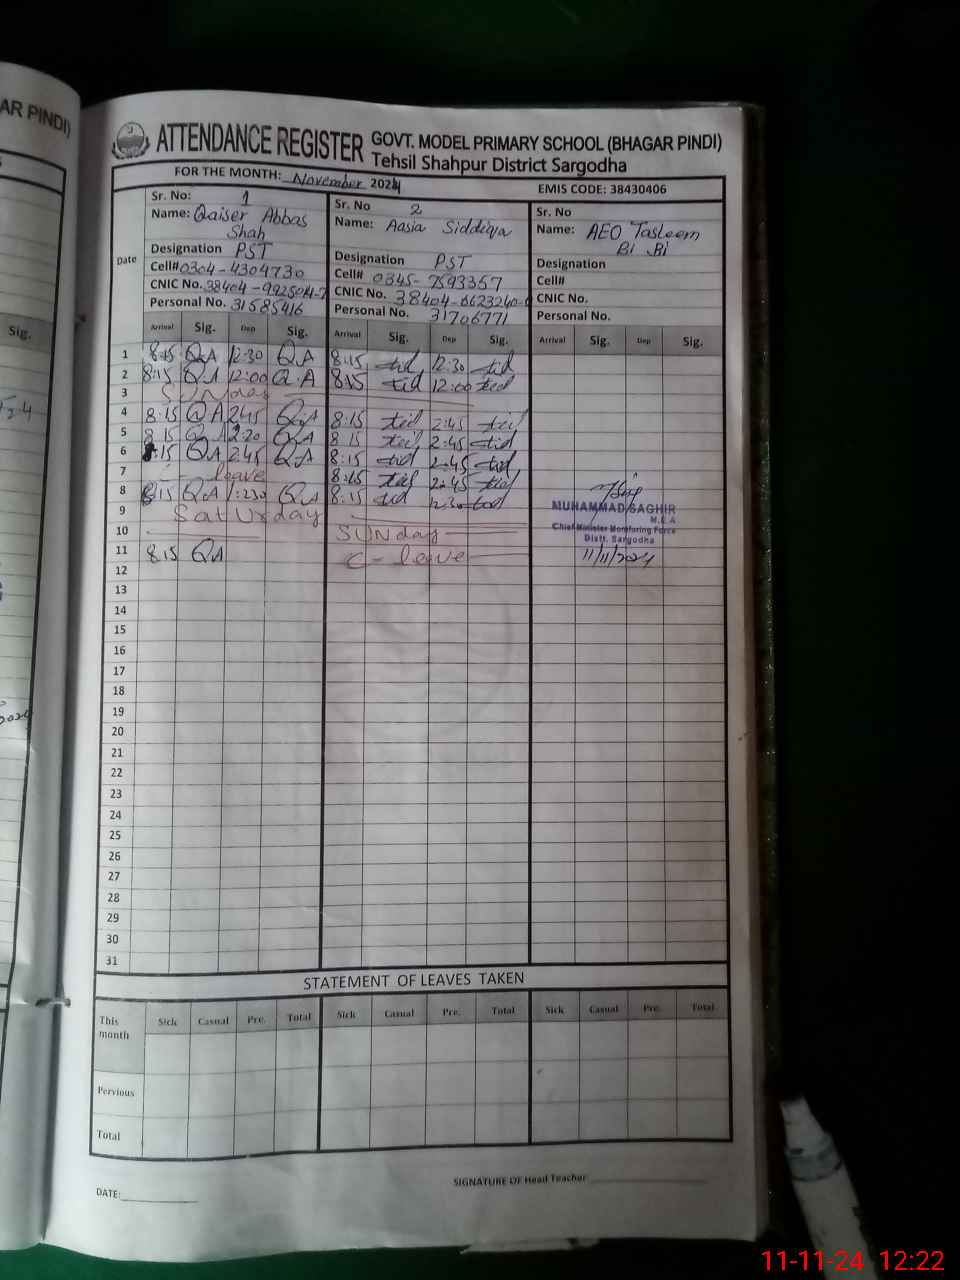 AR PINDI)
ATTENDANCE REGISTER GOVT. MODEL PRIMARY SCHOOL (BHAGAR PINDI)
Tehsil Shahpur District Sargodha
FOR THE MONTH: November 2024
EMIS CODE: 38430406
Date
Sr. No: 1
Name: Qaiser Abbas
Shah
Designation PST
Cell# 0304-4304730
CNIC No. 38404-
Personal No. 31585416
Sr. No 2
Name: Aasia Siddiqa
Designation PST
Cell# 0345-7593357
CNIC No. 38404-
Personal No. 31706771
Sr. No
Name: AEO Tasleem
Bi Bi
Designation
Cell#
CNIC No.
Personal No.
Sig.
Arrival Sig. Dep Sig. Arrival Sig. Dep Sig. Arrival Sig. Dep Sig.
1 8:15 QA 12:30 QA 8:15 12:30
2 8:15 QA 12:00 Q.A 8:15 12:00
3 SUNday
4 8:15 QA 2:45 QA 8:15 2:45
5 8:15 QA 2:20 QA 8:15 2:45
6 8:15 QA 2:45 QA 8:15 2:45
7 leave 8:15 2:45
8 8:15 QA QA 8:15
9 SatUrday
10 SUNday
11 8:15 QA C-leave
MUHAMMAD SAGHIR
M.E.A
Chief Minister Monitoring Force
Distt. Sargodha
11/11/2024
12
13
14
15
16
17
18
19
20
21
22
23
24
25
26
27
28
29
30
31
STATEMENT OF LEAVES TAKEN
This month Sick Casual Pre. Total Sick Casual Pre. Total Sick Casual Pre. Total
Pervious
Total
DATE:
SIGNATURE OF Head Teacher
11-11-24 12:22